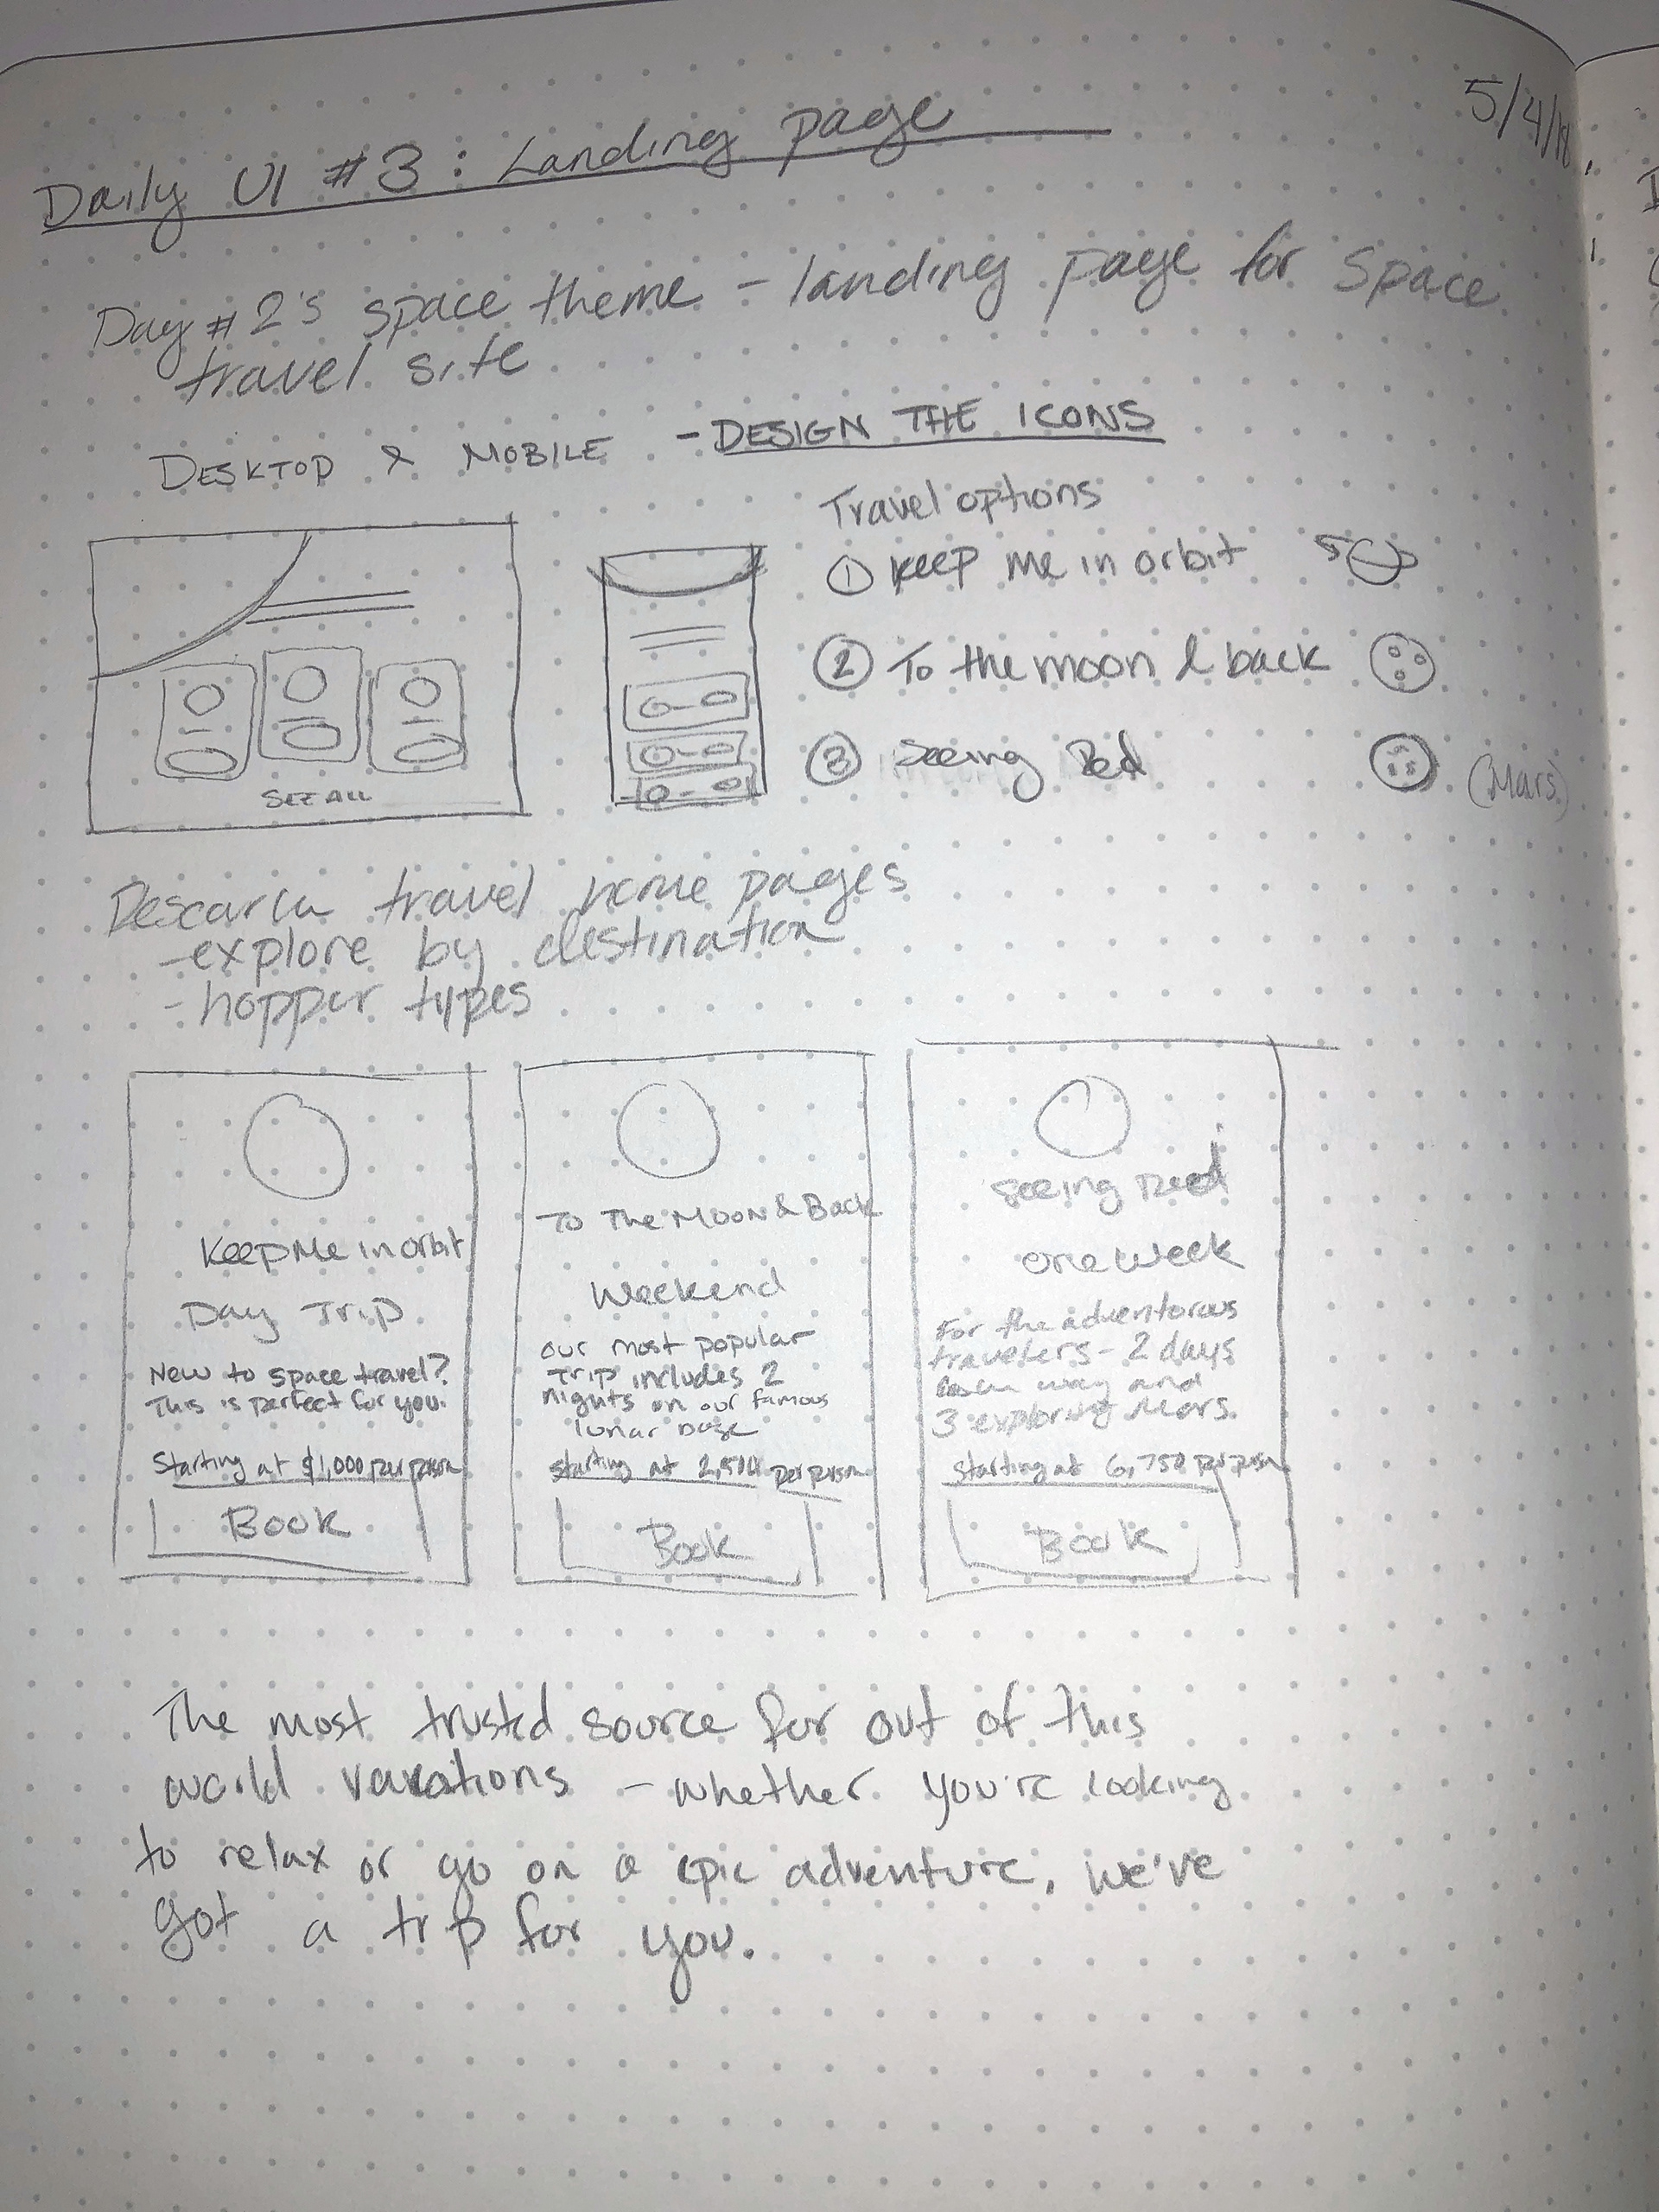 5/4/18
Daily UI #3: Landing page
Day #2's space theme - landing page for space
travel site
DESKTOP & MOBILE - DESIGN THE ICONS
Travel options
① Keep me in orbit
② To the moon & back
③ Seeing Red (Mars)
SEE ALL
Research travel home pages
- explore by destination
- hopper types
Keep Me in orbit
Day Trip
New to space travel?
This is perfect for you.
Starting at $1,000 per person
Book
To The Moon & Back
Weekend
our most popular
Trip includes 2
nights on our famous
lunar base
starting at per person
Book
Seeing Red
one week
For the adventorous
travelers - 2 days
each way and
3 exploring Mars.
starting at 6,750 per person
Book
The most trusted source for out of this
world vacations - whether you're looking
to relax or go on a epic adventure, we've
got a trip for you.